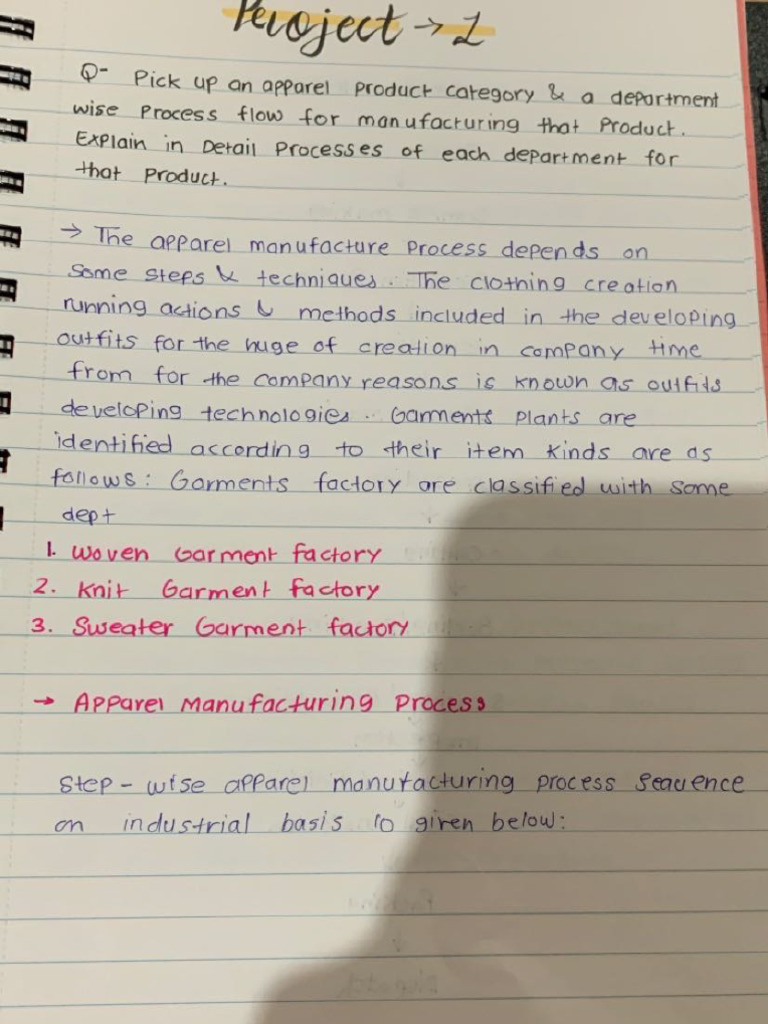 Project → 1
Q- Pick up an apparel product category & a department
wise process flow for manufacturing that product.
Explain in Detail Processes of each department for
that product.
→ The apparel manufacture process depends on
some steps & techniques. The clothing creation
running actions & methods included in the developing
outfits for the huge of creation in company time
from for the company reasons is known as outfits
developing technologies. Garments plants are
identified according to their item kinds are as
follows: Garments factory are classified with some
dept
1. Woven Garment factory
2. Knit Garment factory
3. Sweater Garment factory
→ Apparel Manufacturing Process
Step-wise apparel manufacturing process sequence
on industrial basis is given below: